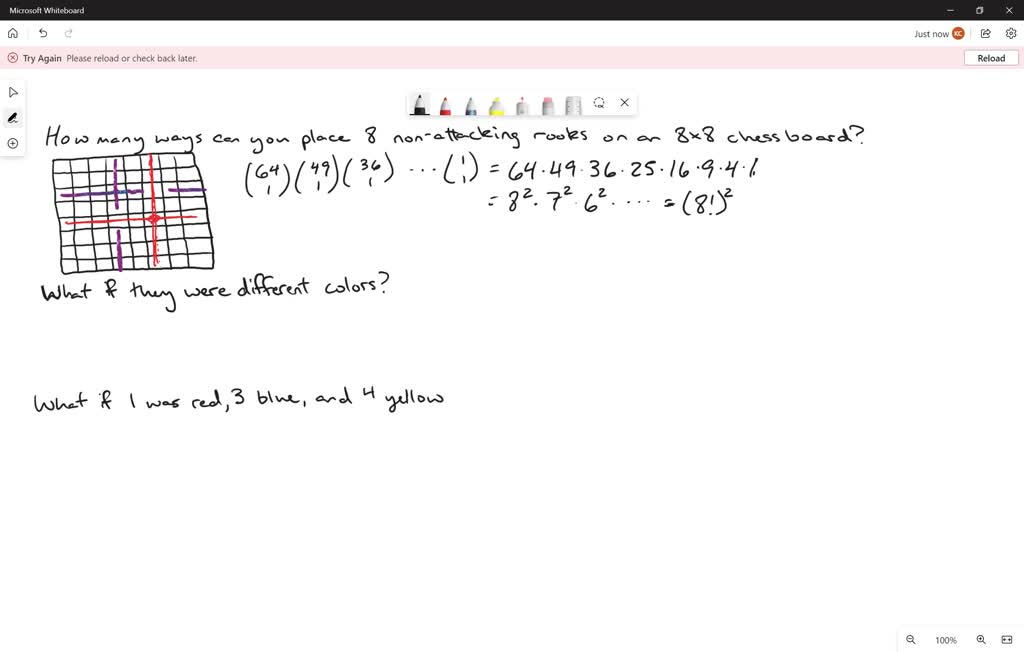 Microsoft Whiteboard
Just now KC
Try Again Please reload or check back later. Reload
How many ways can you place 8 non-attacking rooks on an 8x8 chessboard?
(64 1)(49 1)(36 1) ... (1 1) = 64·49·36·25·16·9·4·1
= 8²·7²·6²· .... = (8!)²
What if they were different colors?
What if 1 was red, 3 blue, and 4 yellow
100%